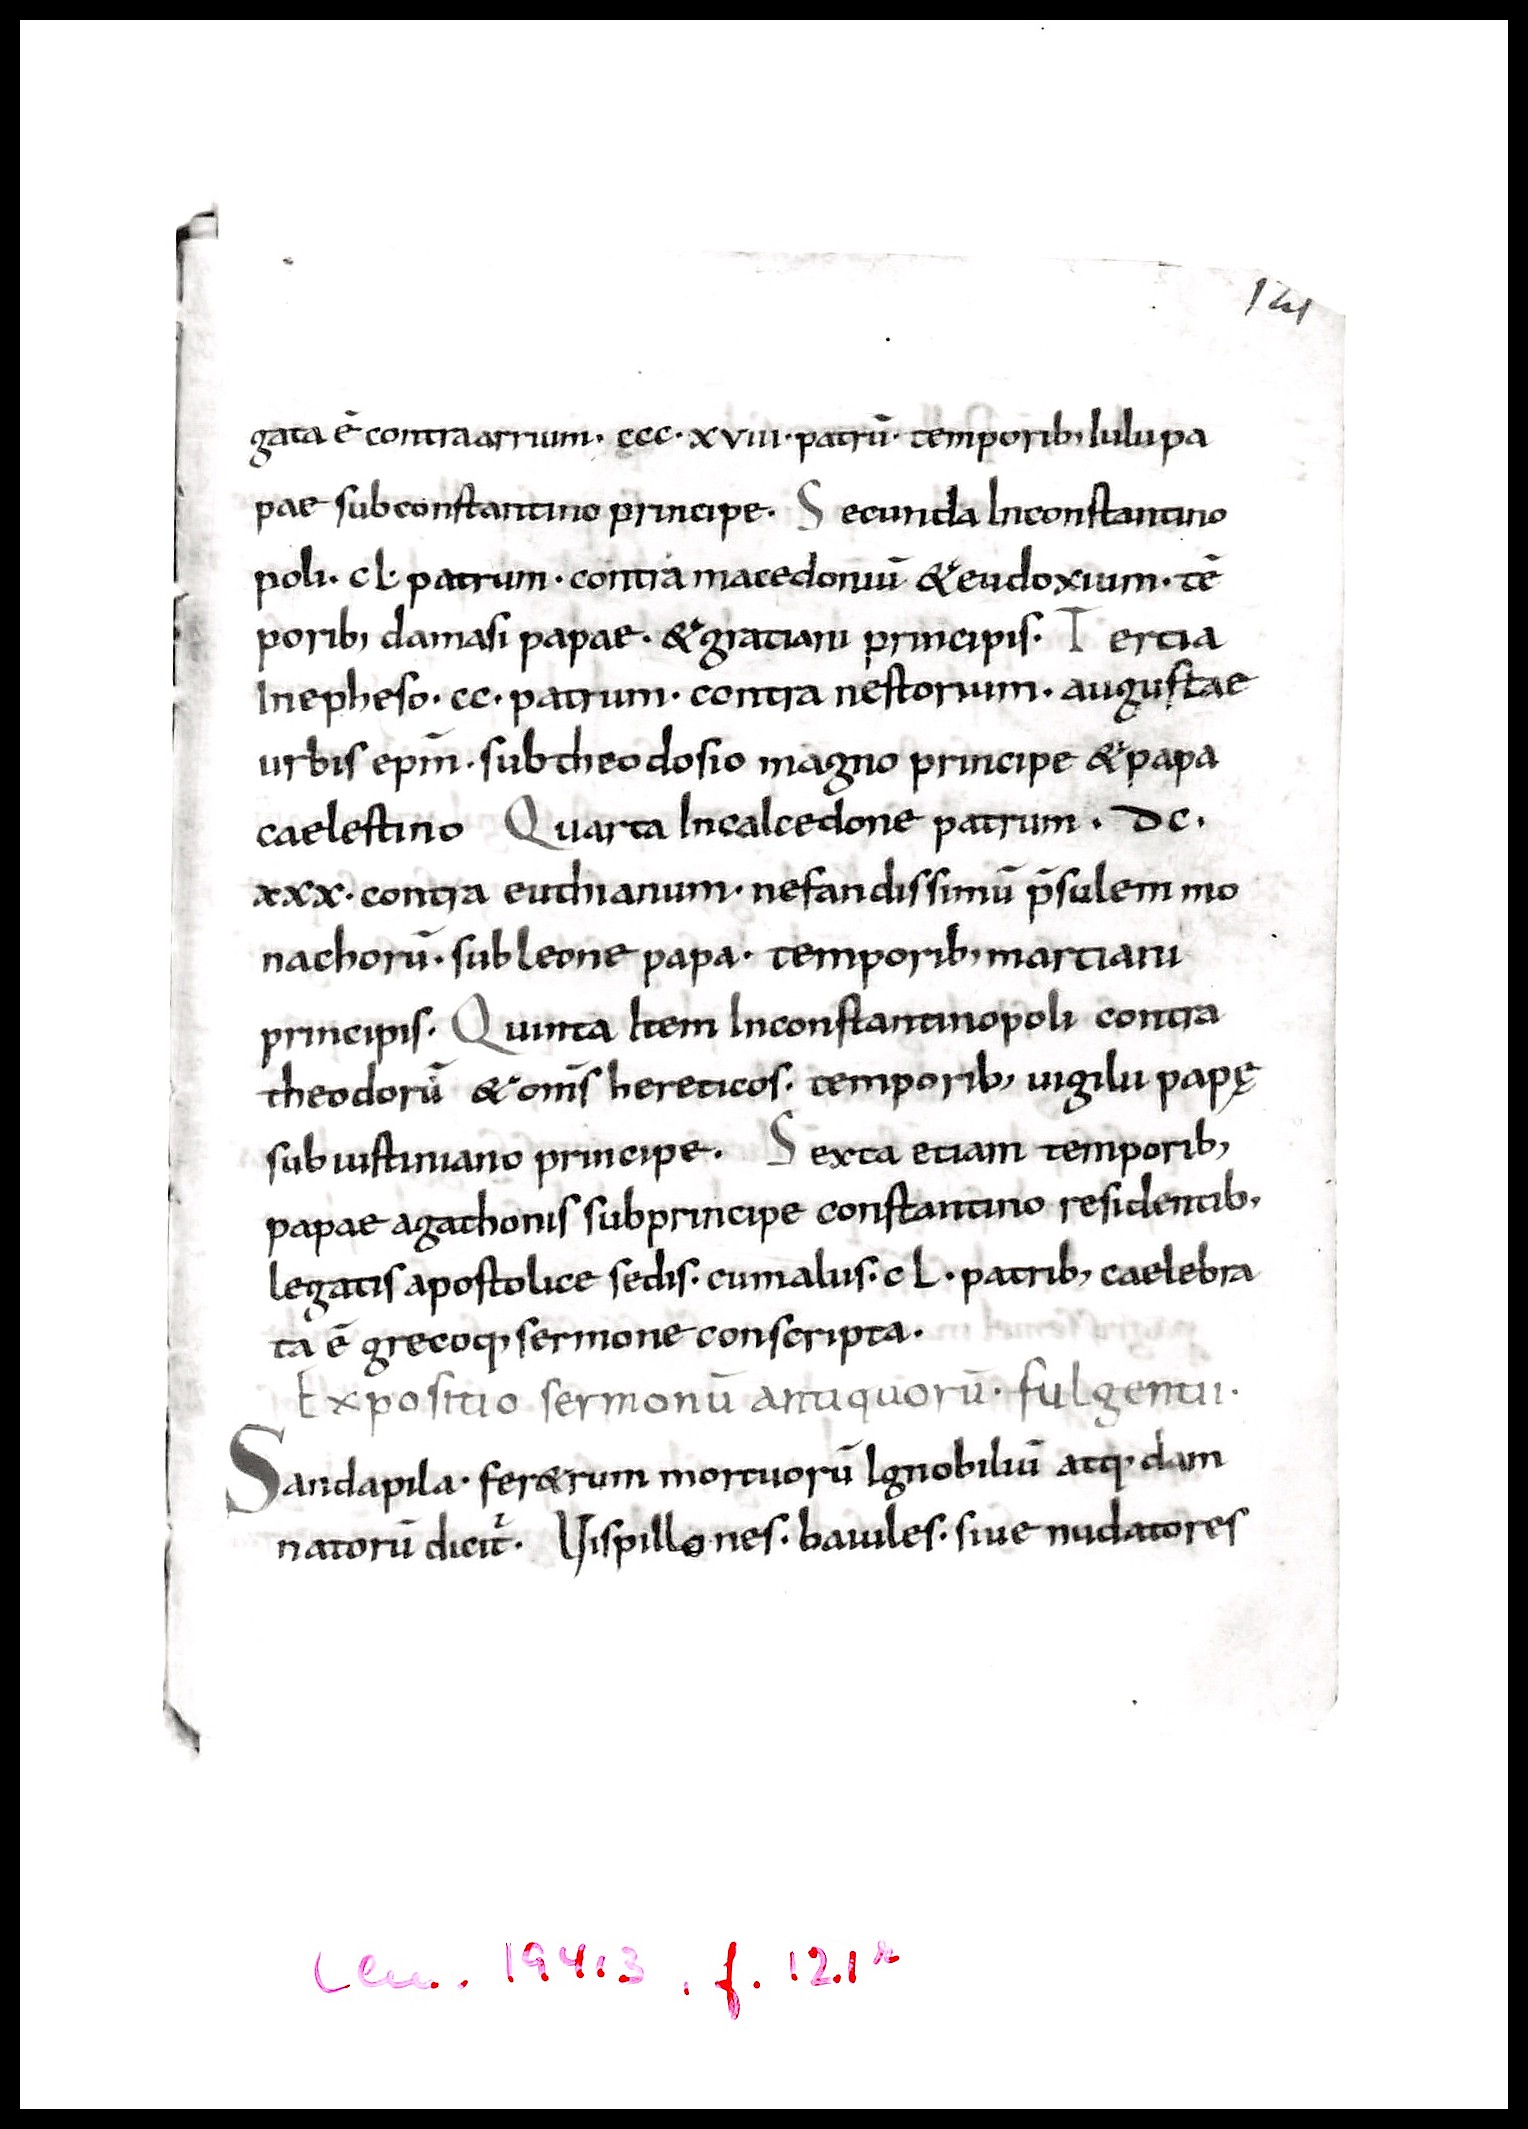 121
gata ē contra arrium · ccc · xviii · patrū · temporib; Iulii pa
pae sub constantino principe · Secunda In constantino
poli · cl · patrum · contra macedoniū & eudoxium · tē
porib; damasi papae · & gratiani principis · Tertia
In epheso · cc · patrum · contra nestorium · augustae
urbis ep̄m · sub theodosio magno principe & papa
caelestino Quarta In calcedone patrum · dc ·
xxx · contra euthianum · nefandissimū p̄sulem mo
nachorū · sub leone papa · temporib; martiani
principis · Quinta Item In constantinopoli contra
theodorū & om̄s hereticos · temporib; uigilii papę
sub iustiniano principe · Sexta etiam temporib;
papae agathonis sub principe constantino residentib;
legatis apostolice sedis · cum alus · cL · patrib; caelebra
ta ē grecoq; sermone conscripta ·
Expositio sermonū antiquorū · fulgentii ·
Sandapila · fer&rum mortuorū Ignobiliū atq; dam
natorū dicit᷑ · Uispillones · baiules · siue nudatores
Clm. 19413, f. 121r